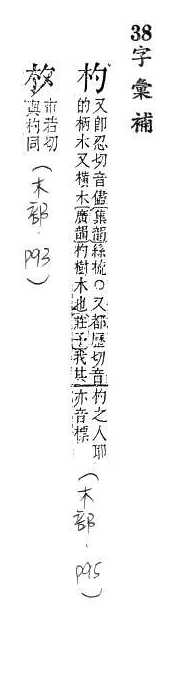 38字彙補
杓又卽忍切音儘集韻絲梳○又都歷切音杓之人耶
的柄木又橫木廣韻杓樹木也莊子我其亦音標
(木部.P95)
市若切
與杓同
(木部.P93)